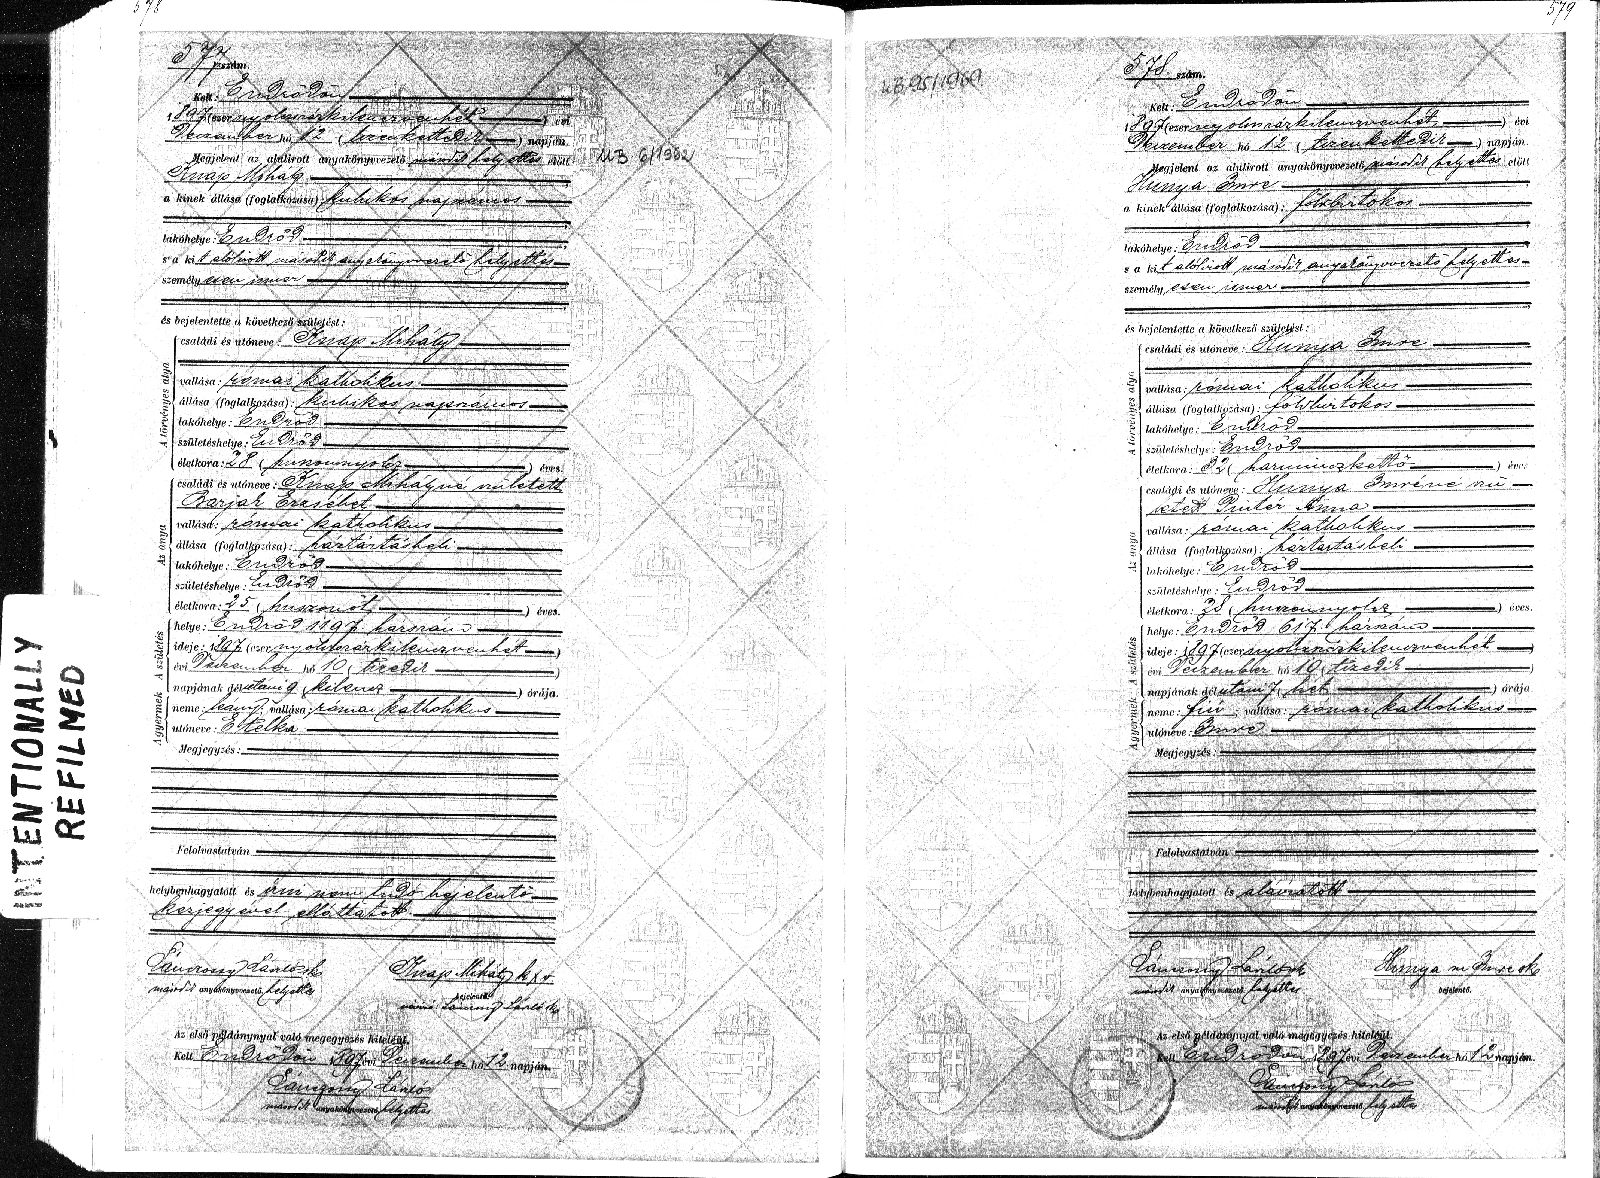 578
577 szám.
Kelt: Endrődön
1897 (ezernyolcszázkilenczvenhét) évi
Deczember hó 12 (tizenkettedik) napján.
Megjelent az alulirott anyakönyvvezető második helyettes előtt
Knap Mihály
a kinek állása (foglalkozása): kubikos napszámos
lakóhelye: Endrőd
s a kit alólirott második anyakönyvvezető helyettes
személyesen ismer
és bejelentette a következő születést:
A törvényes atya
családi és utóneve: Knap Mihály
vallása: római katholikus
állása (foglalkozása): kubikos napszámos
lakóhelye: Endrőd
születéshelye: Endrőd
életkora: 28 (huszonnyolcz) éves.
Az anya
családi és utóneve: Knap Mihályné született
Barják Erzsébet
vallása: római katholikus
állása (foglalkozása): háztartásbeli
lakóhelye: Endrőd
születéshelye: Endrőd
életkora: 25 (huszonöt) éves.
A születés
helye: Endrőd 1197 házszám
ideje: 1897 (ezernyolcszázkilenczvenhét)
évi Deczember hó 10 (tizedik)
napjának délutáni 9 (kilencz) órája.
A gyermek
neme: leány; vallása: római katholikus
utóneve: Etelka
Megjegyzés:
Felolvastatván
helybenhagyatott és irni nem tudó bejelentő
kézjegyével elláttatott.
Lánczony László sk
második anyakönyvvezető helyettes
Knap Mihály kxv
bejelentő
Az első példánynyal való megegyezés hiteléül.
Kelt Endrődön 1897 évi Deczember hó 12 napján.
Lánczony László
második anyakönyvvezető helyettes
MB 6/1962
INTENTIONALLY
REFILMED
579
578. szám.
Kelt: Endrődön
1897 (ezernyolcszázkilenczvenhét) évi
Deczember hó 12 (tizenkettedik) napján.
Megjelent az alulirott anyakönyvvezető második helyettes előtt
Hunya Imre
a kinek állása (foglalkozása): földbirtokos
lakóhelye: Endrőd
s a kit alólirott második anyakönyvvezető helyettes
személyesen ismer
és bejelentette a következő születést:
A törvényes atya
családi és utóneve: Hunya Imre
vallása: római katholikus
állása (foglalkozása): földbirtokos
lakóhelye: Endrőd
születéshelye: Endrőd
életkora: 32 (harminczkettő) éves
Az anya
családi és utóneve: Hunya Imréné szü
letett Pintér Anna
vallása: római katholikus
állása (foglalkozása): háztartásbeli
lakóhelye: Endrőd
születéshelye: Endrőd
életkora: 28 (huszonnyolcz) éves.
A születés
helye: Endrőd 617 házszám
ideje: 1897 (ezernyolcszázkilenczvenhét)
évi Deczember hó 10 (tizedik)
napjának délutáni 7 (hét) órája
A gyermek
neme: fiú; vallása: római katholikus
utóneve: Imre
Megjegyzés:
Felolvastatván
helybenhagyatott és aláiratott
Lánczony László sk
második anyakönyvvezető helyettes
Hunya Imre sk
bejelentő.
Az első példánynyal való megegyezés hiteléül.
Kelt Endrődön 1897 évi Deczember hó 12 napján.
Lánczony László
második anyakönyvvezető helyettes